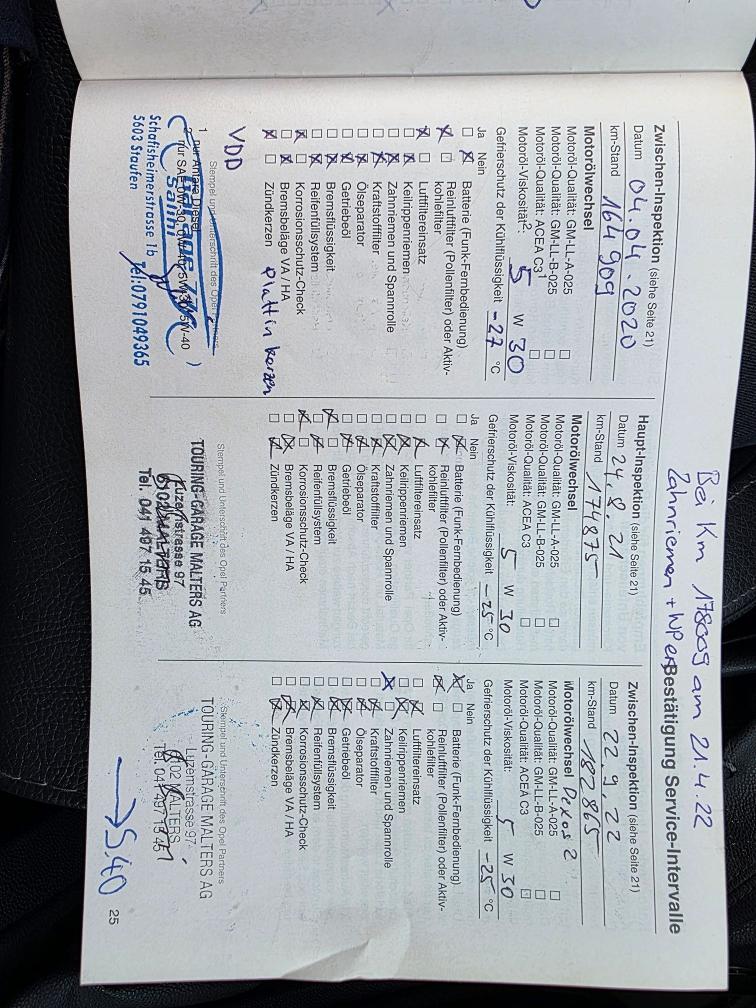 Bei Km 178009 am 21.4.22
Zahnriemen + WP er
Bestätigung Service-Intervalle
Zwischen-Inspektion (siehe Seite 21)
Datum 04.04.2020
km-Stand 164909
Motorölwechsel
Motoröl-Qualität: GM-LL-A-025 ☐
Motoröl-Qualität: GM-LL-B-025 ☐
Motoröl-Qualität: ACEA C3¹ ☐
Motoröl-Viskosität²: 5 W 30
Gefrierschutz der Kühlflüssigkeit -27 °C
Ja Nein
☐ ☒ Batterie (Funk-Fernbedienung)
☒ ☐ Reinluftfilter (Pollenfilter) oder Aktiv-
kohlefilter
☒ ☐ Luftfiltereinsatz
☐ ☒ Keilrippenriemen
☐ ☒ Zahnriemen und Spannrolle
☐ ☒ Kraftstofffilter
☐ ☒ Ölseparator
☐ ☒ Getriebeöl
☐ ☒ Bremsflüssigkeit
☐ ☒ Reifenfüllsystem
☒ ☐ Korrosionsschutz-Check
☐ ☒ Bremsbeläge VA / HA
☒ ☐ Zündkerzen Plattin kerzen
VDD
Stempel und Unterschrift des Opel Partners
1 nur Antara Diesel
Garage
Salim
Schafisheimerstrasse 1b
5603 Staufen Tel:0791049365
Haupt-Inspektion (siehe Seite 21)
Datum 24.8.21
km-Stand 174875
Motorölwechsel
Motoröl-Qualität: GM-LL-A-025 ☐
Motoröl-Qualität: GM-LL-B-025 ☐
Motoröl-Qualität: ACEA C3 ☐
Motoröl-Viskosität: 5 W 30
Gefrierschutz der Kühlflüssigkeit -25 °C
Ja Nein
☐ ☒ Batterie (Funk-Fernbedienung)
☐ ☒ Reinluftfilter (Pollenfilter) oder Aktiv-
kohlefilter
☐ ☒ Luftfiltereinsatz
☐ ☒ Keilrippenriemen
☐ ☒ Zahnriemen und Spannrolle
☐ ☒ Kraftstofffilter
☐ ☒ Ölseparator
☐ ☒ Getriebeöl
☒ ☐ Bremsflüssigkeit
☐ ☒ Reifenfüllsystem
☒ ☐ Korrosionsschutz-Check
☐ ☒ Bremsbeläge VA / HA
☐ ☒ Zündkerzen
Stempel und Unterschrift des Opel Partners
TOURING-GARAGE MALTERS AG
Luzernstrasse 97
6102 MALTERS
Tel. 041 497 15 45
Zwischen-Inspektion (siehe Seite 21)
Datum 22.9.22
km-Stand 182865
Motorölwechsel Dexos 2
Motoröl-Qualität: GM-LL-A-025 ☐
Motoröl-Qualität: GM-LL-B-025 ☐
Motoröl-Qualität: ACEA C3 ☐
Motoröl-Viskosität: 5 W 30
Gefrierschutz der Kühlflüssigkeit -25 °C
Ja Nein
☒ ☐ Batterie (Funk-Fernbedienung)
☒ ☐ Reinluftfilter (Pollenfilter) oder Aktiv-
kohlefilter
☐ ☒ Luftfiltereinsatz
☐ ☒ Keilrippenriemen
☒ ☐ Zahnriemen und Spannrolle
☐ ☒ Kraftstofffilter
☐ ☒ Ölseparator
☐ ☒ Getriebeöl
☐ ☒ Bremsflüssigkeit
☐ ☒ Reifenfüllsystem
☐ ☒ Korrosionsschutz-Check
☐ ☒ Bremsbeläge VA / HA
☐ ☒ Zündkerzen
Stempel und Unterschrift des Opel Partners
TOURING-GARAGE MALTERS AG
Luzernstrasse 97
6102 MALTERS
Tel. 041 497 15 45
→ S.40
25